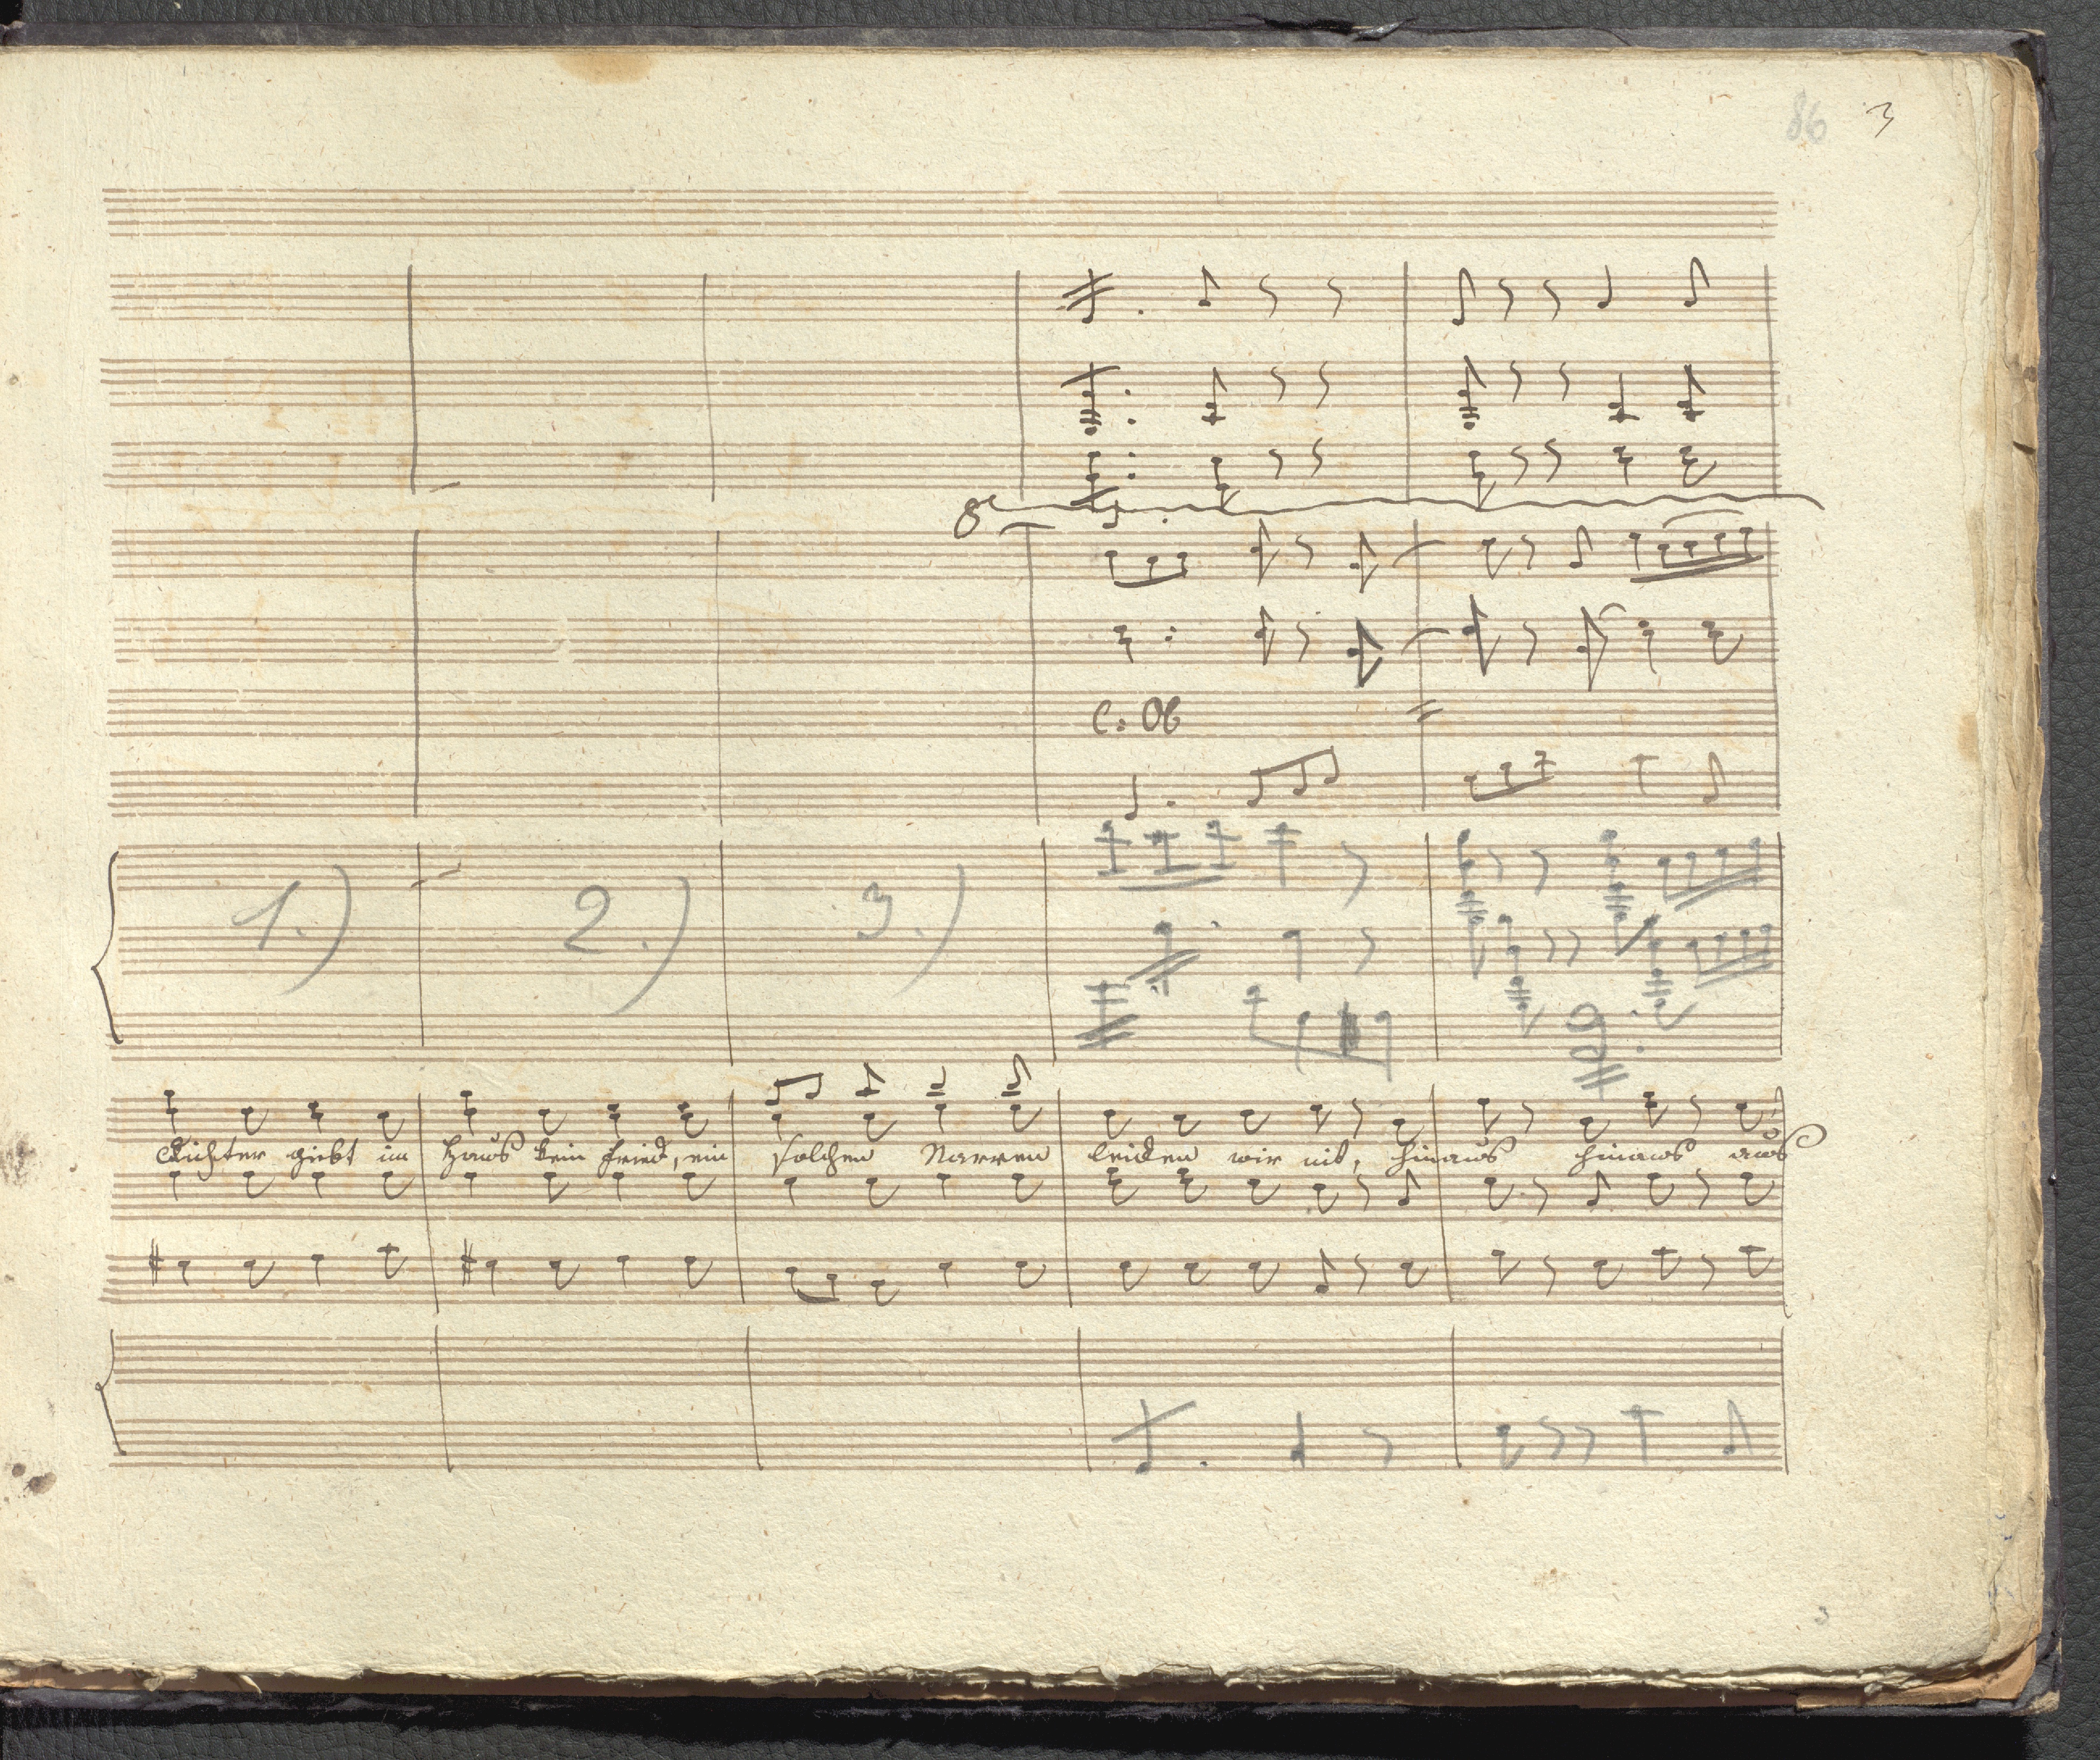 86 3
8
C: Ob
1.) 2.) 3.)
Dichter giebt im Haus kein Fried, ein solchen Narren leiden wir nit, hinaus hinaus aus
3